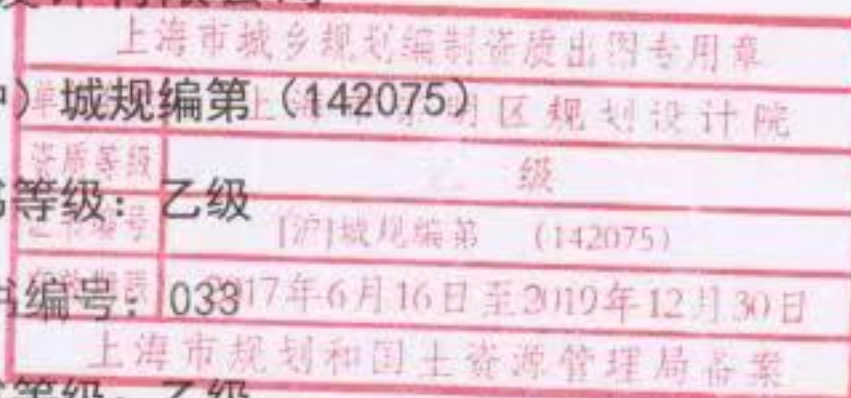 设计有限公司
上海市城乡规划编制资质出图专用章
）城规编第（142075）
单 上 明区规划设计院
资质等级 级
书等级：乙级
证书编号 [沪]城规编第 （142075）
书编号：033
2017年6月16日至2019年12月30日
上海市规划和国土资源管理局备案
等级：乙级